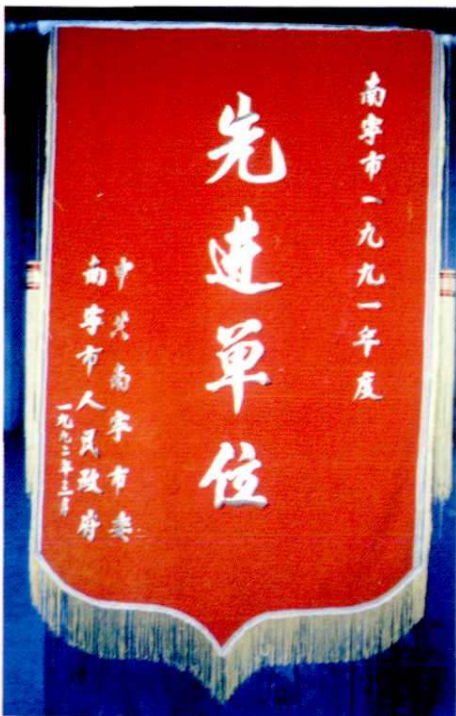 南宁市一九九一年度
先进单位
中共南宁市委
南宁市人民政府
一九九二年三月